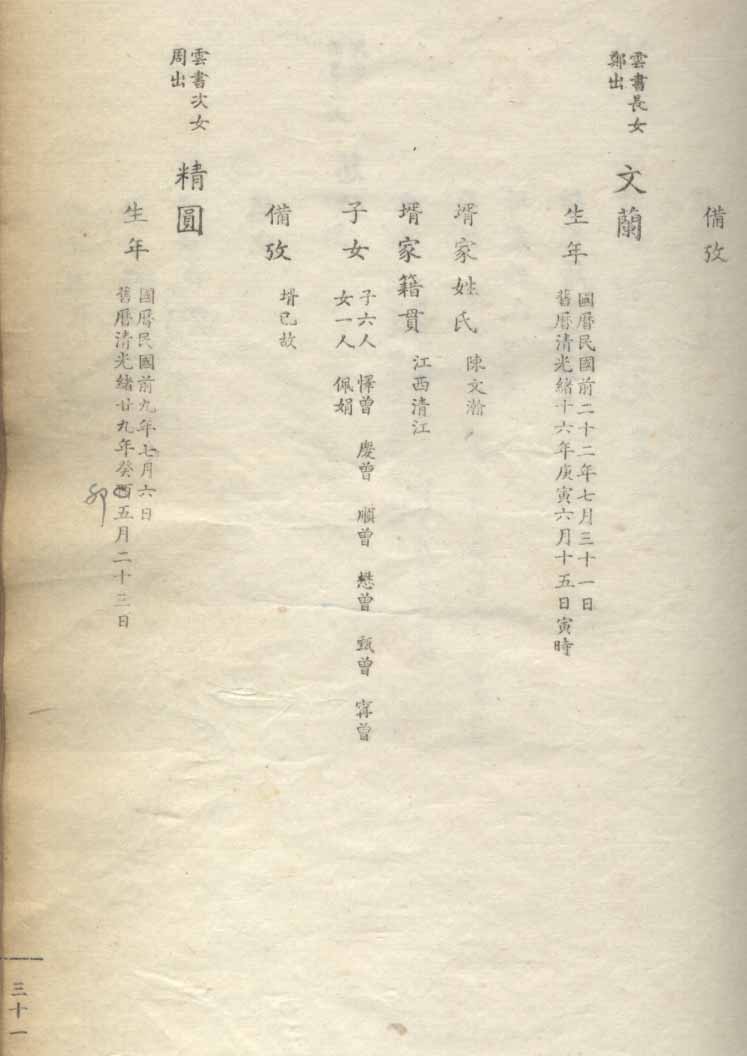 備攷
雲書長女
鄭出
文蘭
生年
國曆民國前二十二年七月三十一日
舊曆清光緒十六年庚寅六月十五日寅時
壻家姓氏
陳文瀚
壻家籍貫
江西清江
子女
子六人 懌曾 慶曾 順曾 懋曾 甄曾 寗曾
女一人 佩娟
備攷
壻已故
雲書次女
周出
精圓
生年
國曆民國前九年七月六日
舊曆清光緒廿九年癸酉五月二十三日
卯
三十一